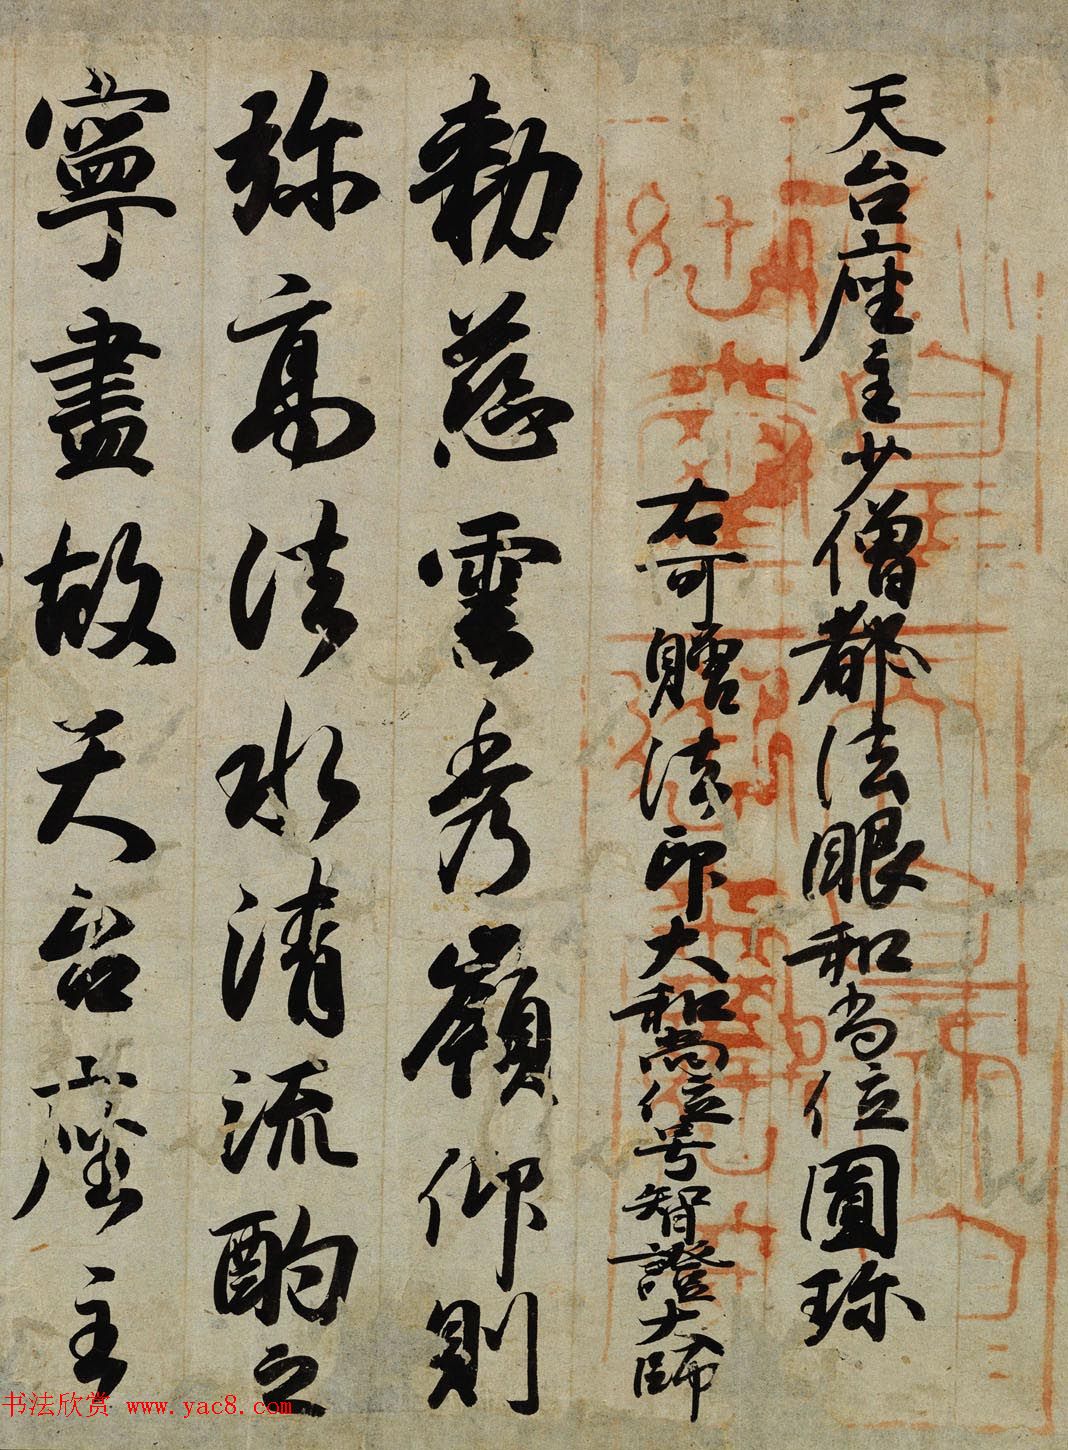 天台座主少僧都法眼和尚位圓珎
右可贈法印大和尚位号智證大師
勅慈雲秀嶺仰則
弥高法水清流酌之
寧盡故天台座主
书法欣赏 www.yac8.com